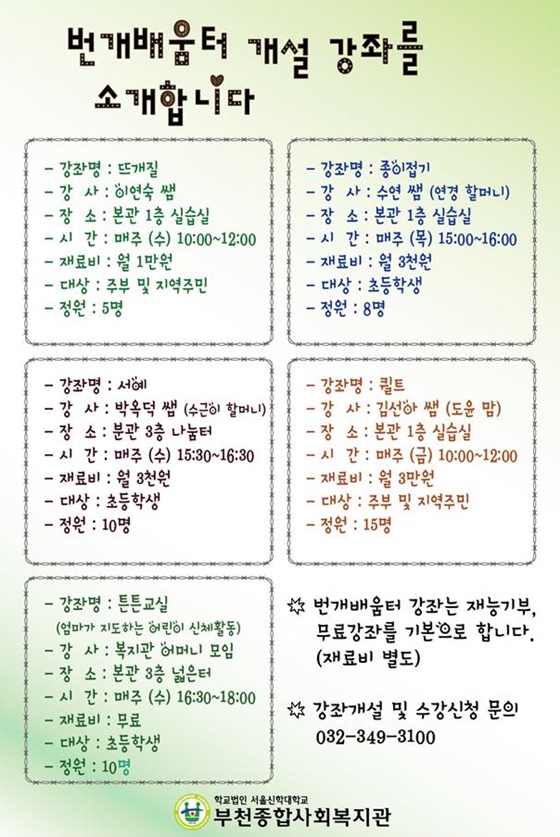 번개배움터 개설 강좌를
소개합니다
- 강좌명 : 뜨개질
- 강 사 : 이연숙 쌤
- 장 소 : 본관 1층 실습실
- 시 간 : 매주 (수) 10:00~12:00
- 재료비 : 월 1만원
- 대상 : 주부 및 지역주민
- 정원 : 5명
- 강좌명 : 종이접기
- 강 사 : 수연 쌤 (연경 할머니)
- 장 소 : 본관 1층 실습실
- 시 간 : 매주 (목) 15:00~16:00
- 재료비 : 월 3천원
- 대상 : 초등학생
- 정원 : 8명
- 강좌명 : 서예
- 강 사 : 박옥덕 쌤 (수근이 할머니)
- 장 소 : 분관 3층 나눔터
- 시 간 : 매주 (수) 15:30~16:30
- 재료비 : 월 3천원
- 대상 : 초등학생
- 정원 : 10명
- 강좌명 : 퀼트
- 강 사 : 김선아 쌤 (도윤 맘)
- 장 소 : 본관 1층 실습실
- 시 간 : 매주 (금) 10:00~12:00
- 재료비 : 월 3만원
- 대상 : 주부 및 지역주민
- 정원 : 15명
- 강좌명 : 튼튼교실
(엄마가 지도하는 어린이 신체활동)
- 강 사 : 복지관 어머니 모임
- 장 소 : 본관 3층 넓은터
- 시 간 : 매주 (수) 16:30~18:00
- 재료비 : 무료
- 대상 : 초등학생
- 정원 : 10명
번개배움터 강좌는 재능기부,
무료강좌를 기본으로 합니다.
(재료비 별도)
강좌개설 및 수강신청 문의
032-349-3100
학교법인 서울신학대학교
부천종합사회복지관